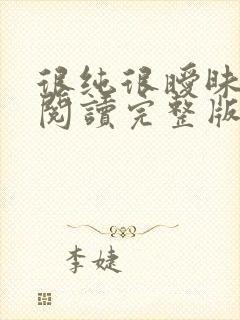 很純很曖昧
閱讀完整版
李婕